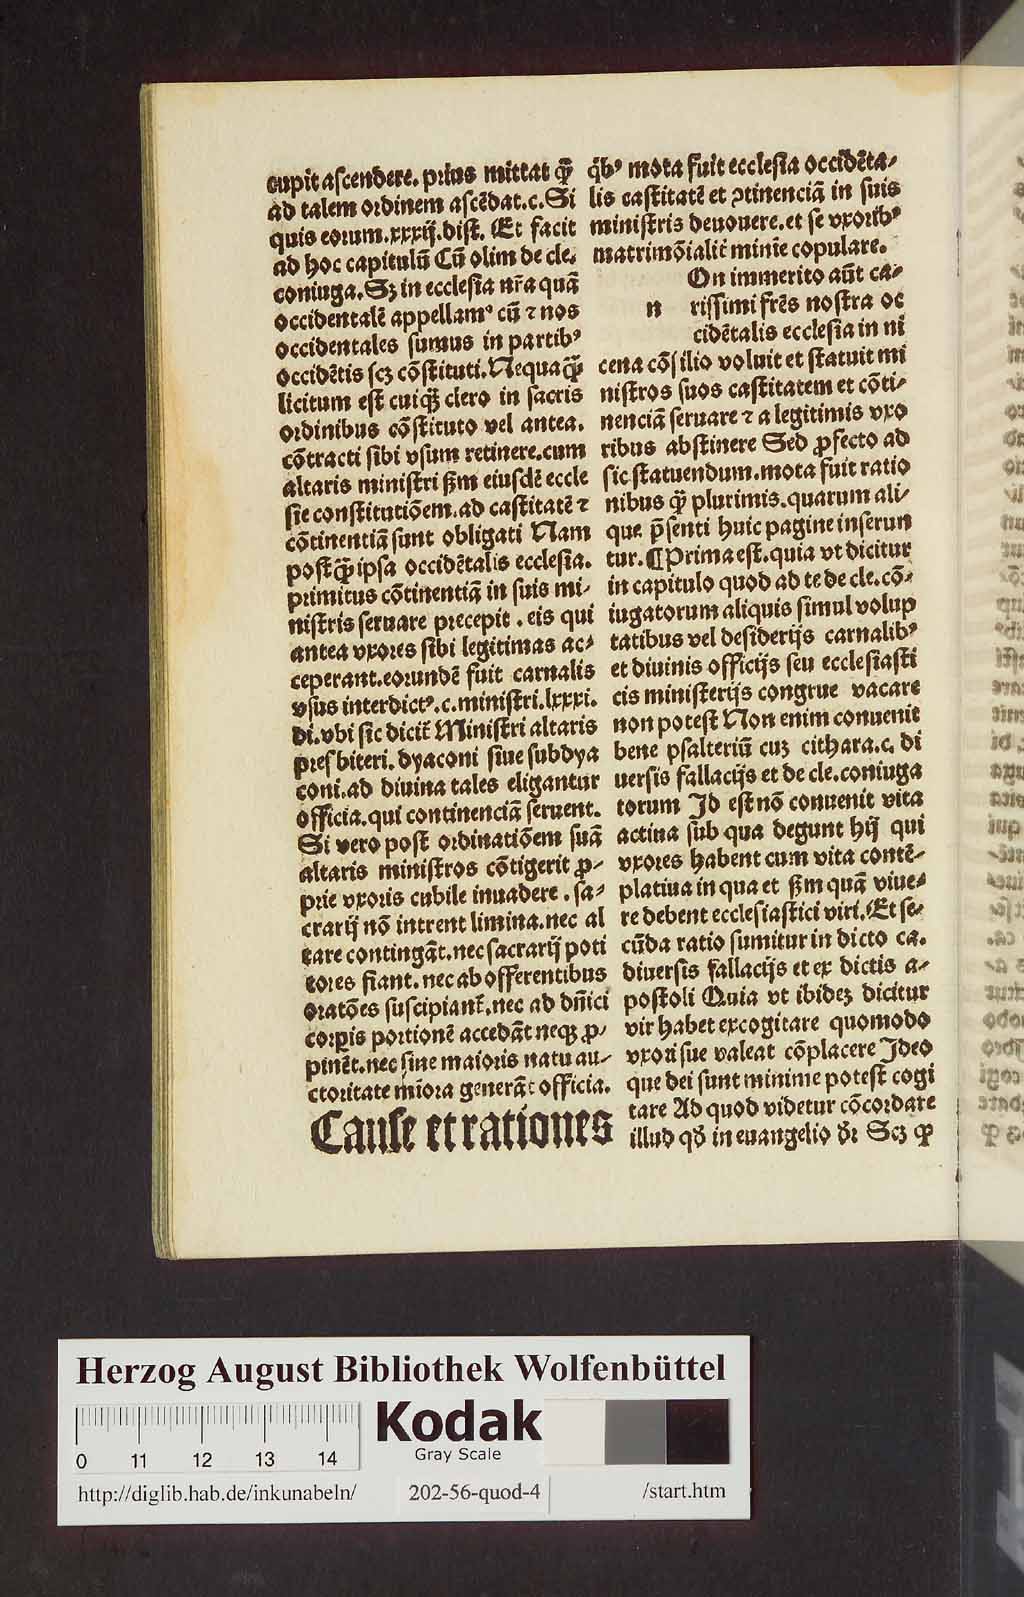 cupit ascendere. prius mittat qͣ̃
ad talem ordinem ascēdat.c.Si
quis eorum.xxxij.dist. Et facit
ad hoc capitulū Cū olim de cle.
coniuga. Sꝫ in ecclesia nr̄a quā
occidentalē appellamꝰ cū ⁊ nos
occidentales sumus in partibꝰ
occidētis scꝫ cōstituti. Nequaqͣ̃
licitum est cuiqꝫ̃ clero in sacris
ordinibus cōstituto vel antea.
cōtracti sibi vsum retinere.cum
altaris ministri ẜm eiusdē eccle
sie constitutiōem.ad castitatē ⁊
cōtinentiā sunt obligati Nam
postqͣ̃ ipsa occidētalis ecclesia.
primitus cōtinentiā in suis mi-
nistris seruare precepit . eis qui
antea vxores sibi legitimas ac-
ceperant.eorundē fuit carnalis
vsus interdictꝰ.c.ministri.lxxxi.
di.vbi sic dicit̄ Ministri altaris
presbiteri. dyaconi siue subdya
coni.ad diuina tales eligantur
officia.qui continenciā seruent.
Si vero post ordinatiōem suā
altaris ministros cōtigerit ꝓ-
prie vxoris cubile inuadere . sa-
crarij nō intrent limina.nec al
tare contingāt.nec sacrarij poti
tores fiant. nec ab offerentibus
oratōes suscipiant̄.nec ad dn̄ici
corꝑis portionē accedāt neqꝫ ꝓ-
pinēt.nec sine maioris natu au-
ctoritate miora generāt officia.
Cause et rationes
q̄bꝰ mota fuit ecclesia occidēta-
lis castitatē et ꝯtinenciā in suis
ministris deuouere.et se vxoribꝰ
matrimōialit̄ minīe copulare.
On immerito aūt ca-
n rissimi frēs nostra oc
cidētalis ecclesia in ni
cena cōsilio voluit et statuit mi
nistros suos castitatem et cōti-
nenciā seruare ⁊ a legitimis vxo
ribus abstinere Sed ꝓfecto ad
sic statuendum.mota fuit ratio
nibus qͣ̃ plurimis.quarum ali-
que p̄senti huic pagine inserun
tur. ¶ Prima est.quia vt dicitur
in capitulo quod ad te de cle.cō-
iugatorum aliquis simul volup
tatibus vel desiderijs carnalibꝰ
et diuinis officijs seu ecclesiasti
cis ministerijs congrue vacare
non potest Non enim conuenit
bene psalteriū cuꝫ cithara.c. di
uersis fallacijs et de cle.coniuga
torum Id est nō conuenit vita
actiua sub qua degunt hij qui
vxores habent cum vita contē-
platiua in qua et ẜm quā viue-
re debent ecclesiastici viri. Et se-
cūda ratio sumitur in dicto ca.
diuersis fallacijs et ex dictis a-
postoli Quia vt ibideꝫ dicitur
vir habet excogitare quomodo
vxori sue valeat cōplacere Ideo
que dei sunt minime potest cogi
tare Ad quod videtur cōcordare
illud qđ in euangelio dr̄ Scꝫ ꝙ
Herzog August Bibliothek Wolfenbüttel
0 11 12 13 14
Kodak
Gray Scale
http://diglib.hab.de/inkunabeln/ 202-56-quod-4 /start.htm